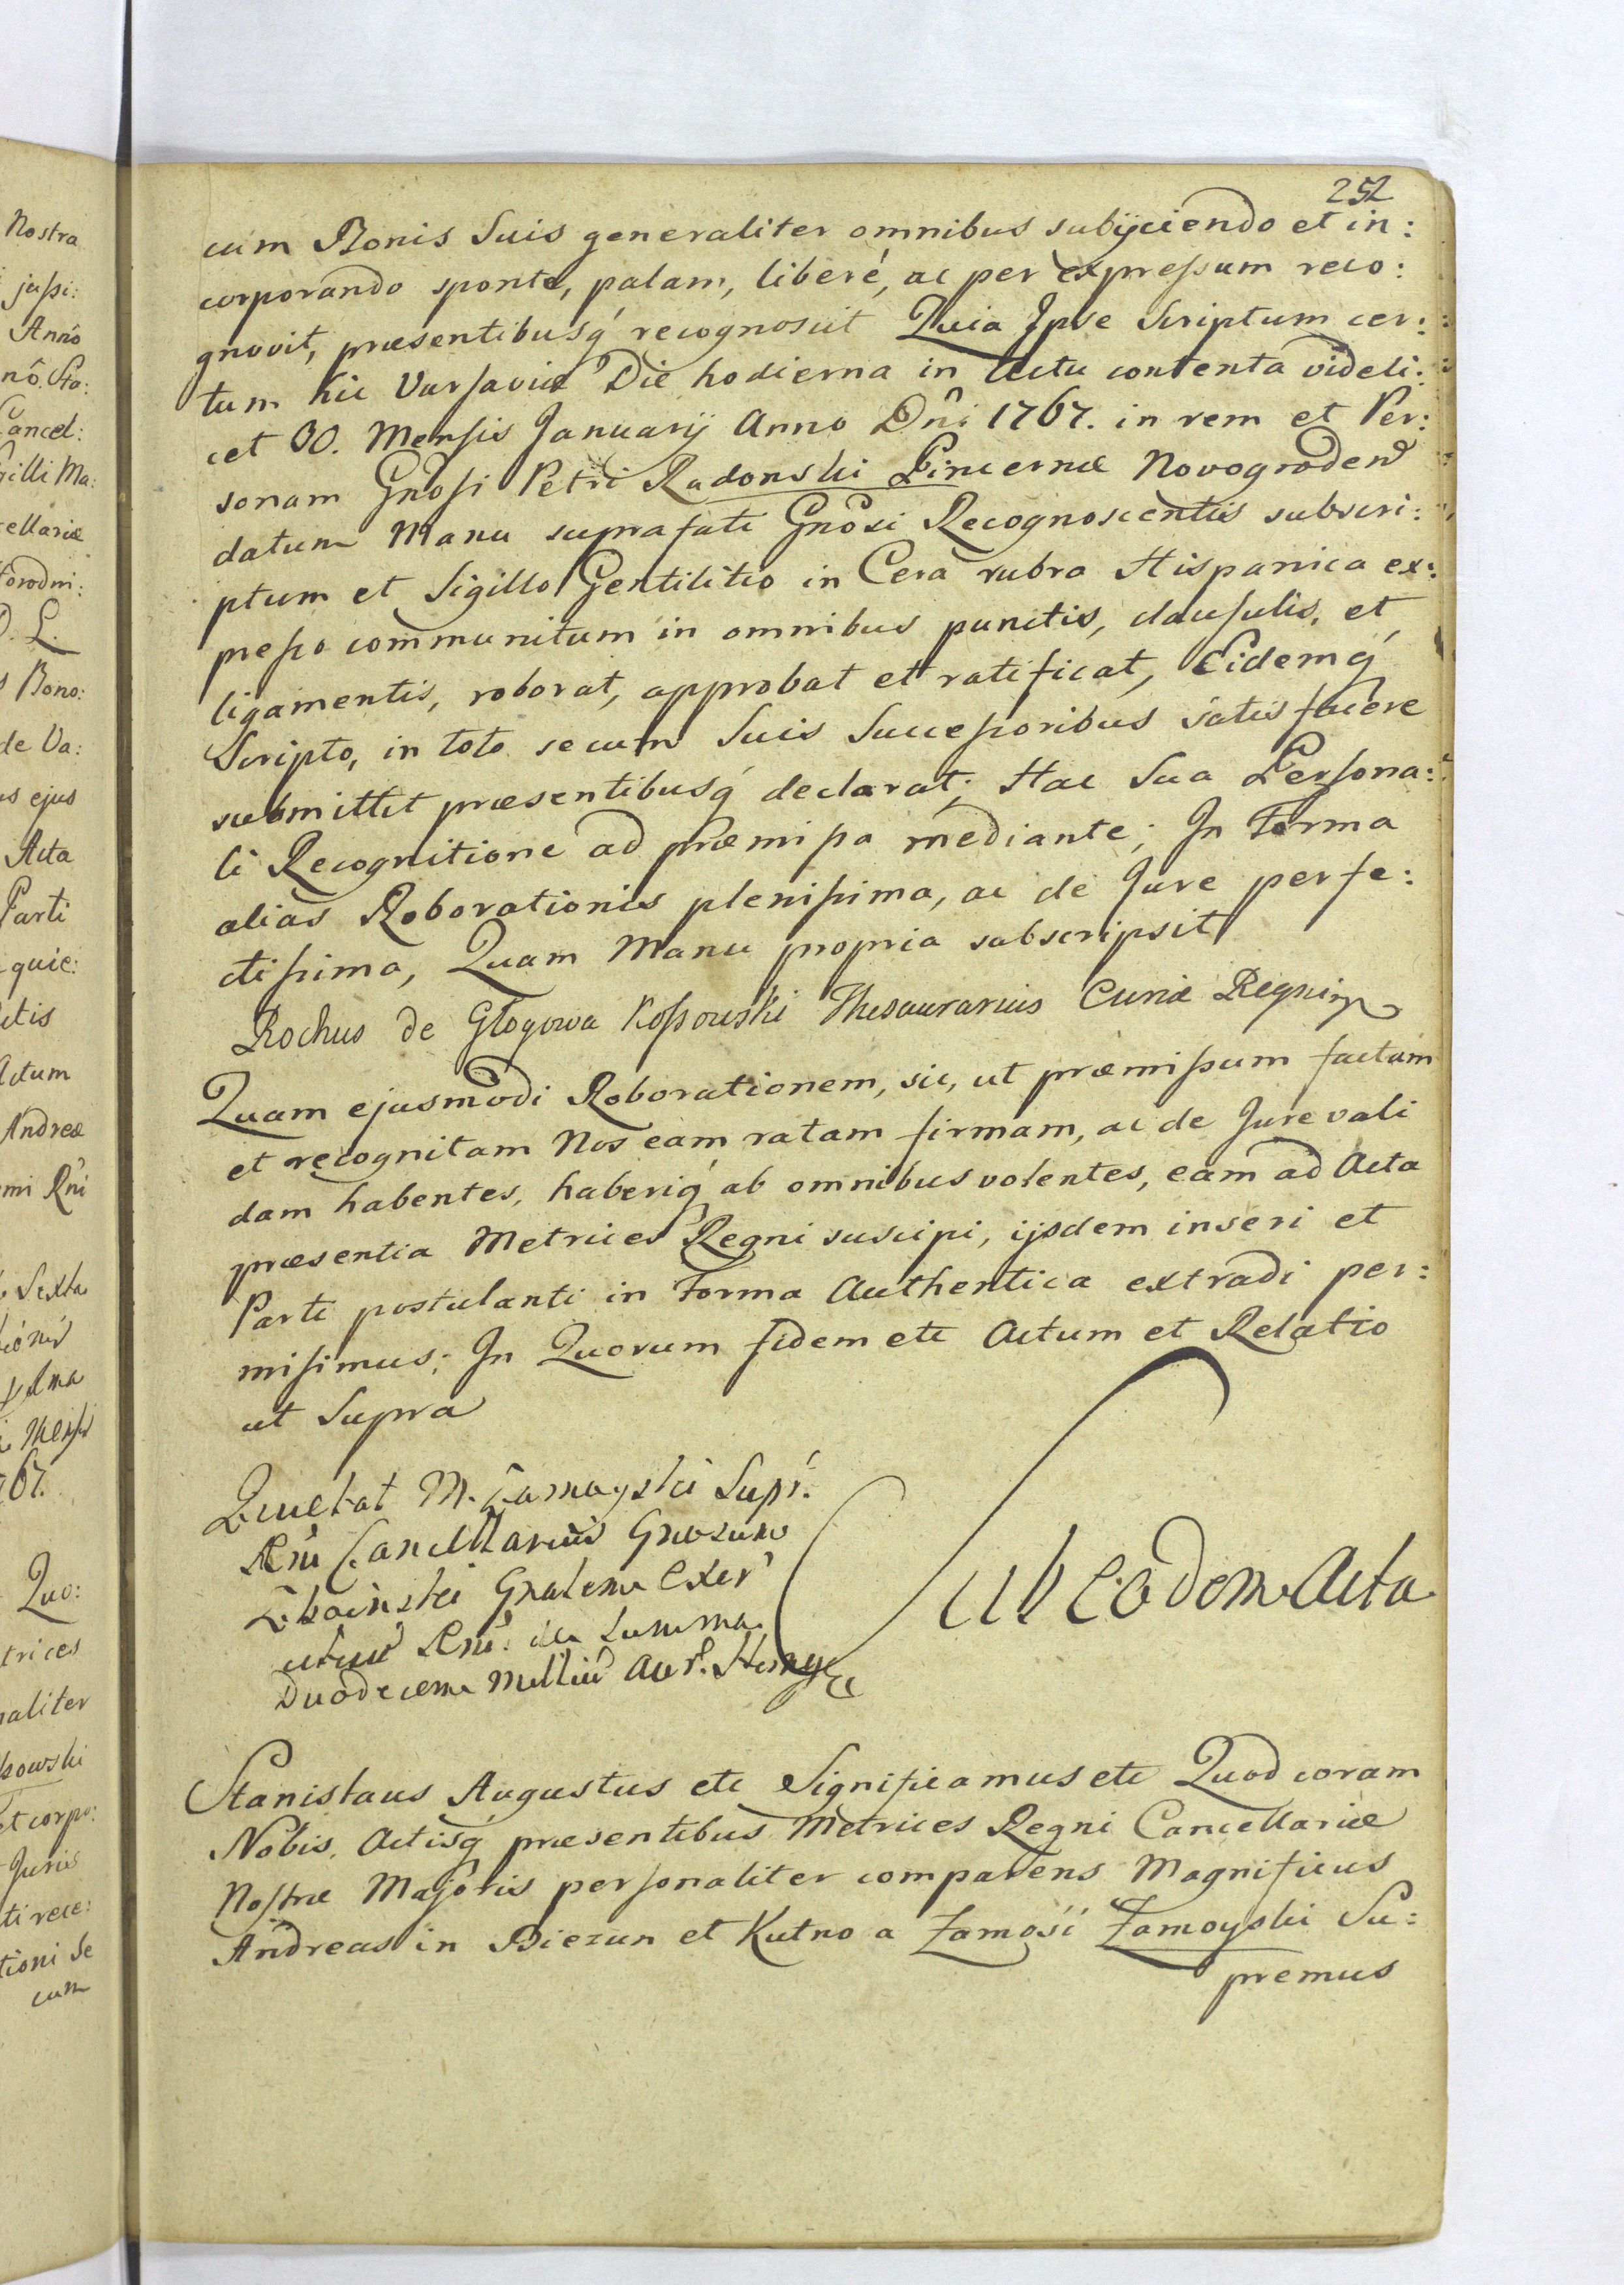 252
cum Bonis Suis generaliter omnibus subijciendo et in:
corporando sponte, palam, liberé, ac per expressum reco:
gnovit, præsentibusq́ recognoscit Quia Ipse Scriptum cer:
tum hic Varsaviæ Die hodierna in Actu contenta videli:
cet 30. Mensis Januarij Anno Dn̂i 1767. in rem et Per:
sonam Gnôsi Petri Radonski Pincernæ Novogroden
datum Manu suprafati Gnôsi Recognoscentis subscri:
ptum et Sigillo Gentilitio in Cera rubra Hispanica ex:
presso communitum in omnibus punctis, clausulis, et
ligamentis, roborat, approbat et ratificat, Eidemq́
Scripto, in toto secum Suis Successoribus satisfacere
submittit præsentibusq́ declarat; Hac Sua Persona:
li Recognitione ad præmissa mediante; In Forma
alias Roborationis plenissima, ac de Jure perfe:
ctissima, Quam Manu propria subscripsit
Rochus de Głogowa Kossowski Thesaurarius Curiæ Regni
Quam ejusmodi Roborationem, sic, ut præmissum factam
et recognitam Nos eam ratam firmam, ac de Jure vali
dam habentes, haberiq́ ab omnibus volentes, eam ad Acta
præsentia Metrices Regni suscipi, ijsdem inseri et
Parti postulanti in Forma Authentica extradi per:
misimus; In Quorum fidem etc Actum et Relatio
ut Supra
Quietat M. Zamoyski Supr.
Cancellarius Gnosum
Gnalem Exer
summa
Duodecem Millium
Sub eodem Acta
Stanislaus Augustus etc Significamus etc Quod coram
Nobis, Actisq́ præsentibus Metrices Regni Cancellariæ
Nostræ Majoris personaliter comparens Magnificus
Andreas in Biezun et Kutno a Zamość Zamoyski Su:
premus
Nostra
jussi:
Anno
nô. Sta:
Cancel:
gilli Ma:
cellariæ
D. L.
Bono:
de Va:
us ejus
Acta
Parti
quie:
Actum
Andreæ
Sexta
67.
Quo:
trices
naliter
sowski
et corpo:
Juris
ti rece:
tioni Se
cum